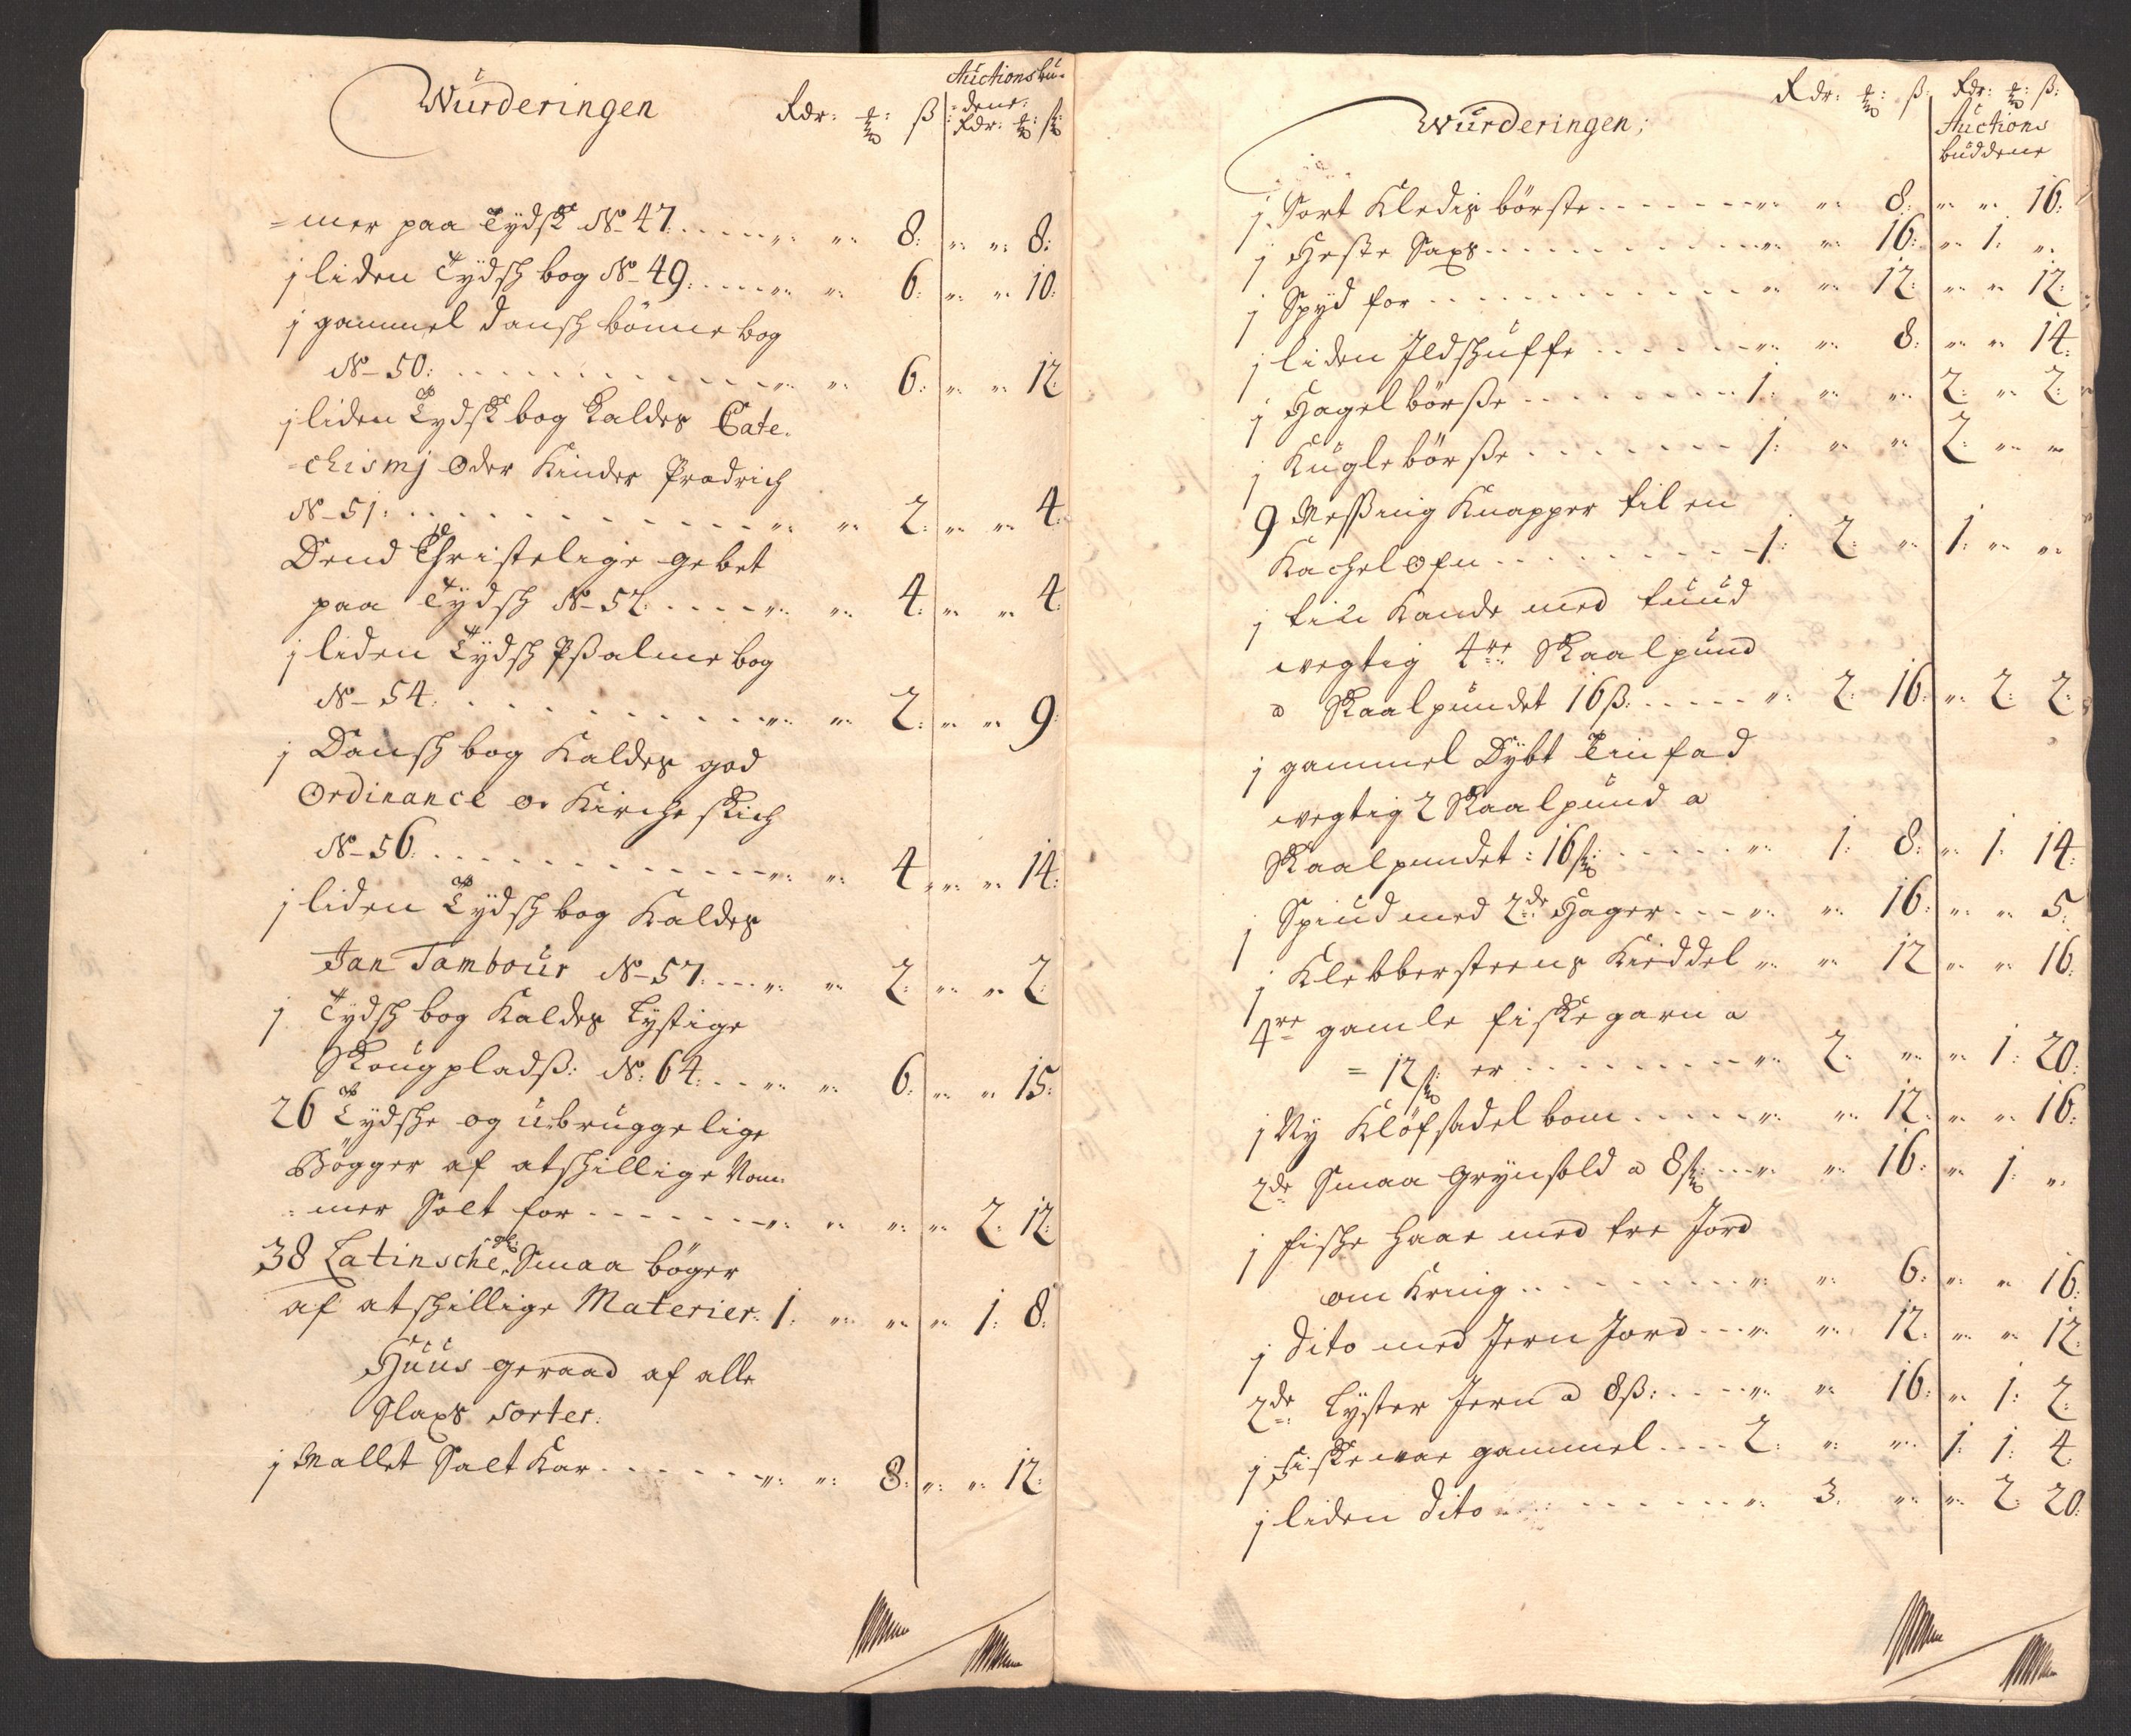 Wurderingen Rdr: ß
Auctionsbu-
=dene:
Rdr: ß
=mer paa Tydsk No 47. ,, ,, 8: ,, ,, 8:
j liden Tydsch bog No 49: ,, ,, 6: ,, ,, 10:
j gammel dansch bönne bog
No 50: ,, ,, 6: ,, ,, 12:
j liden Tydsk bog kaldes Cate-
=chismj oder Kinder
No 51: ,, ,, 2: ,, ,, 4:
Dend Christelige gebet
paa Tydsch No 52: ,, ,, 4: ,, ,, 4:
j liden Tydsch Psalme bog
No 54: ,, ,, 2: ,, ,, 9:
j Dansch bog kaldes god
Ordinance o. Kirche skich
No 56: ,, ,, 4 ,, ,, 14:
j liden Tydsch bog kaldes
Jan Tambour No 57: ,, ,, 2: ,, ,, 2:
j Tydsch bog kaldes Lystige
Skougpladß: No: 64: ,, ,, 6: ,, ,, 15:
26 Tydsche og ubruggelige
Bögger af atschillige Nom-
=mer Solt for ,, ,, ,, ,, 2: 12:
38 Latinsche gl: Smaa böger
af atschillige Materier: 1: ,, ,, ,, 1: 8:
Huus geraad af alle
Slaxs Sorter:
j Mallet Salt Kar ,, ,, 8: ,, ,, 12:
Wurderingen; Rdr: ß: Rdr: ß:
Auctions
buddene
j Sort Kledis börste ,, ,, 8: ,, ,, 16:
j Heste Saxs ,, ,, 16: ,, 1: ,,
j Spyd for ,, ,, 12: ,, ,, 12:
j liden Jldschuffe ,, ,, 8: ,, ,, 14:
j Hagel börße 1: ,, ,, 2: ,, 2:
j Kugle börße 1: ,, ,, 2: ,, ,,
9 Messing Knapper til en
Kachelofn 1: 2: ,, 1: ,, ,,
j tin Kande med tuud
wegtig 4re Skaalpund
a Skaalpundet 16ß: ,, 2: 16: ,, 2: 2:
j gammel Dybt Tinfad
wegtig 2 Skaalpund a
Skaalpundet: 16 ,, 1: 8: ,, 1: 14:
j Spiud med 2de Hager ,, ,, 16: ,, ,, 5:
j Klebbersteens Kieddel ,, ,, 12 ,, ,, 16:
4re gamle fiskegarn a
= 12 er ,, 2: ,, ,, 1: 20:
j Ny Klöfsadel bom ,, ,, 12: ,, ,, 16:
2de Smaa grynsold a 8 ,, ,, 16: ,, 1: ,,
j fische haae med tre Jord
om kring ,, ,, 6: ,, ,, 16:
j dito med Jern Jord ,, ,, 12: ,, ,, 12:
2de Lyster Jern a 8ß: ,, ,, 16: ,, 1: 2:
j Fiske waa gammel 2: ,, ,, 1: 1: 4:
j liden dito ,, 3: ,, ,, 2: 20: